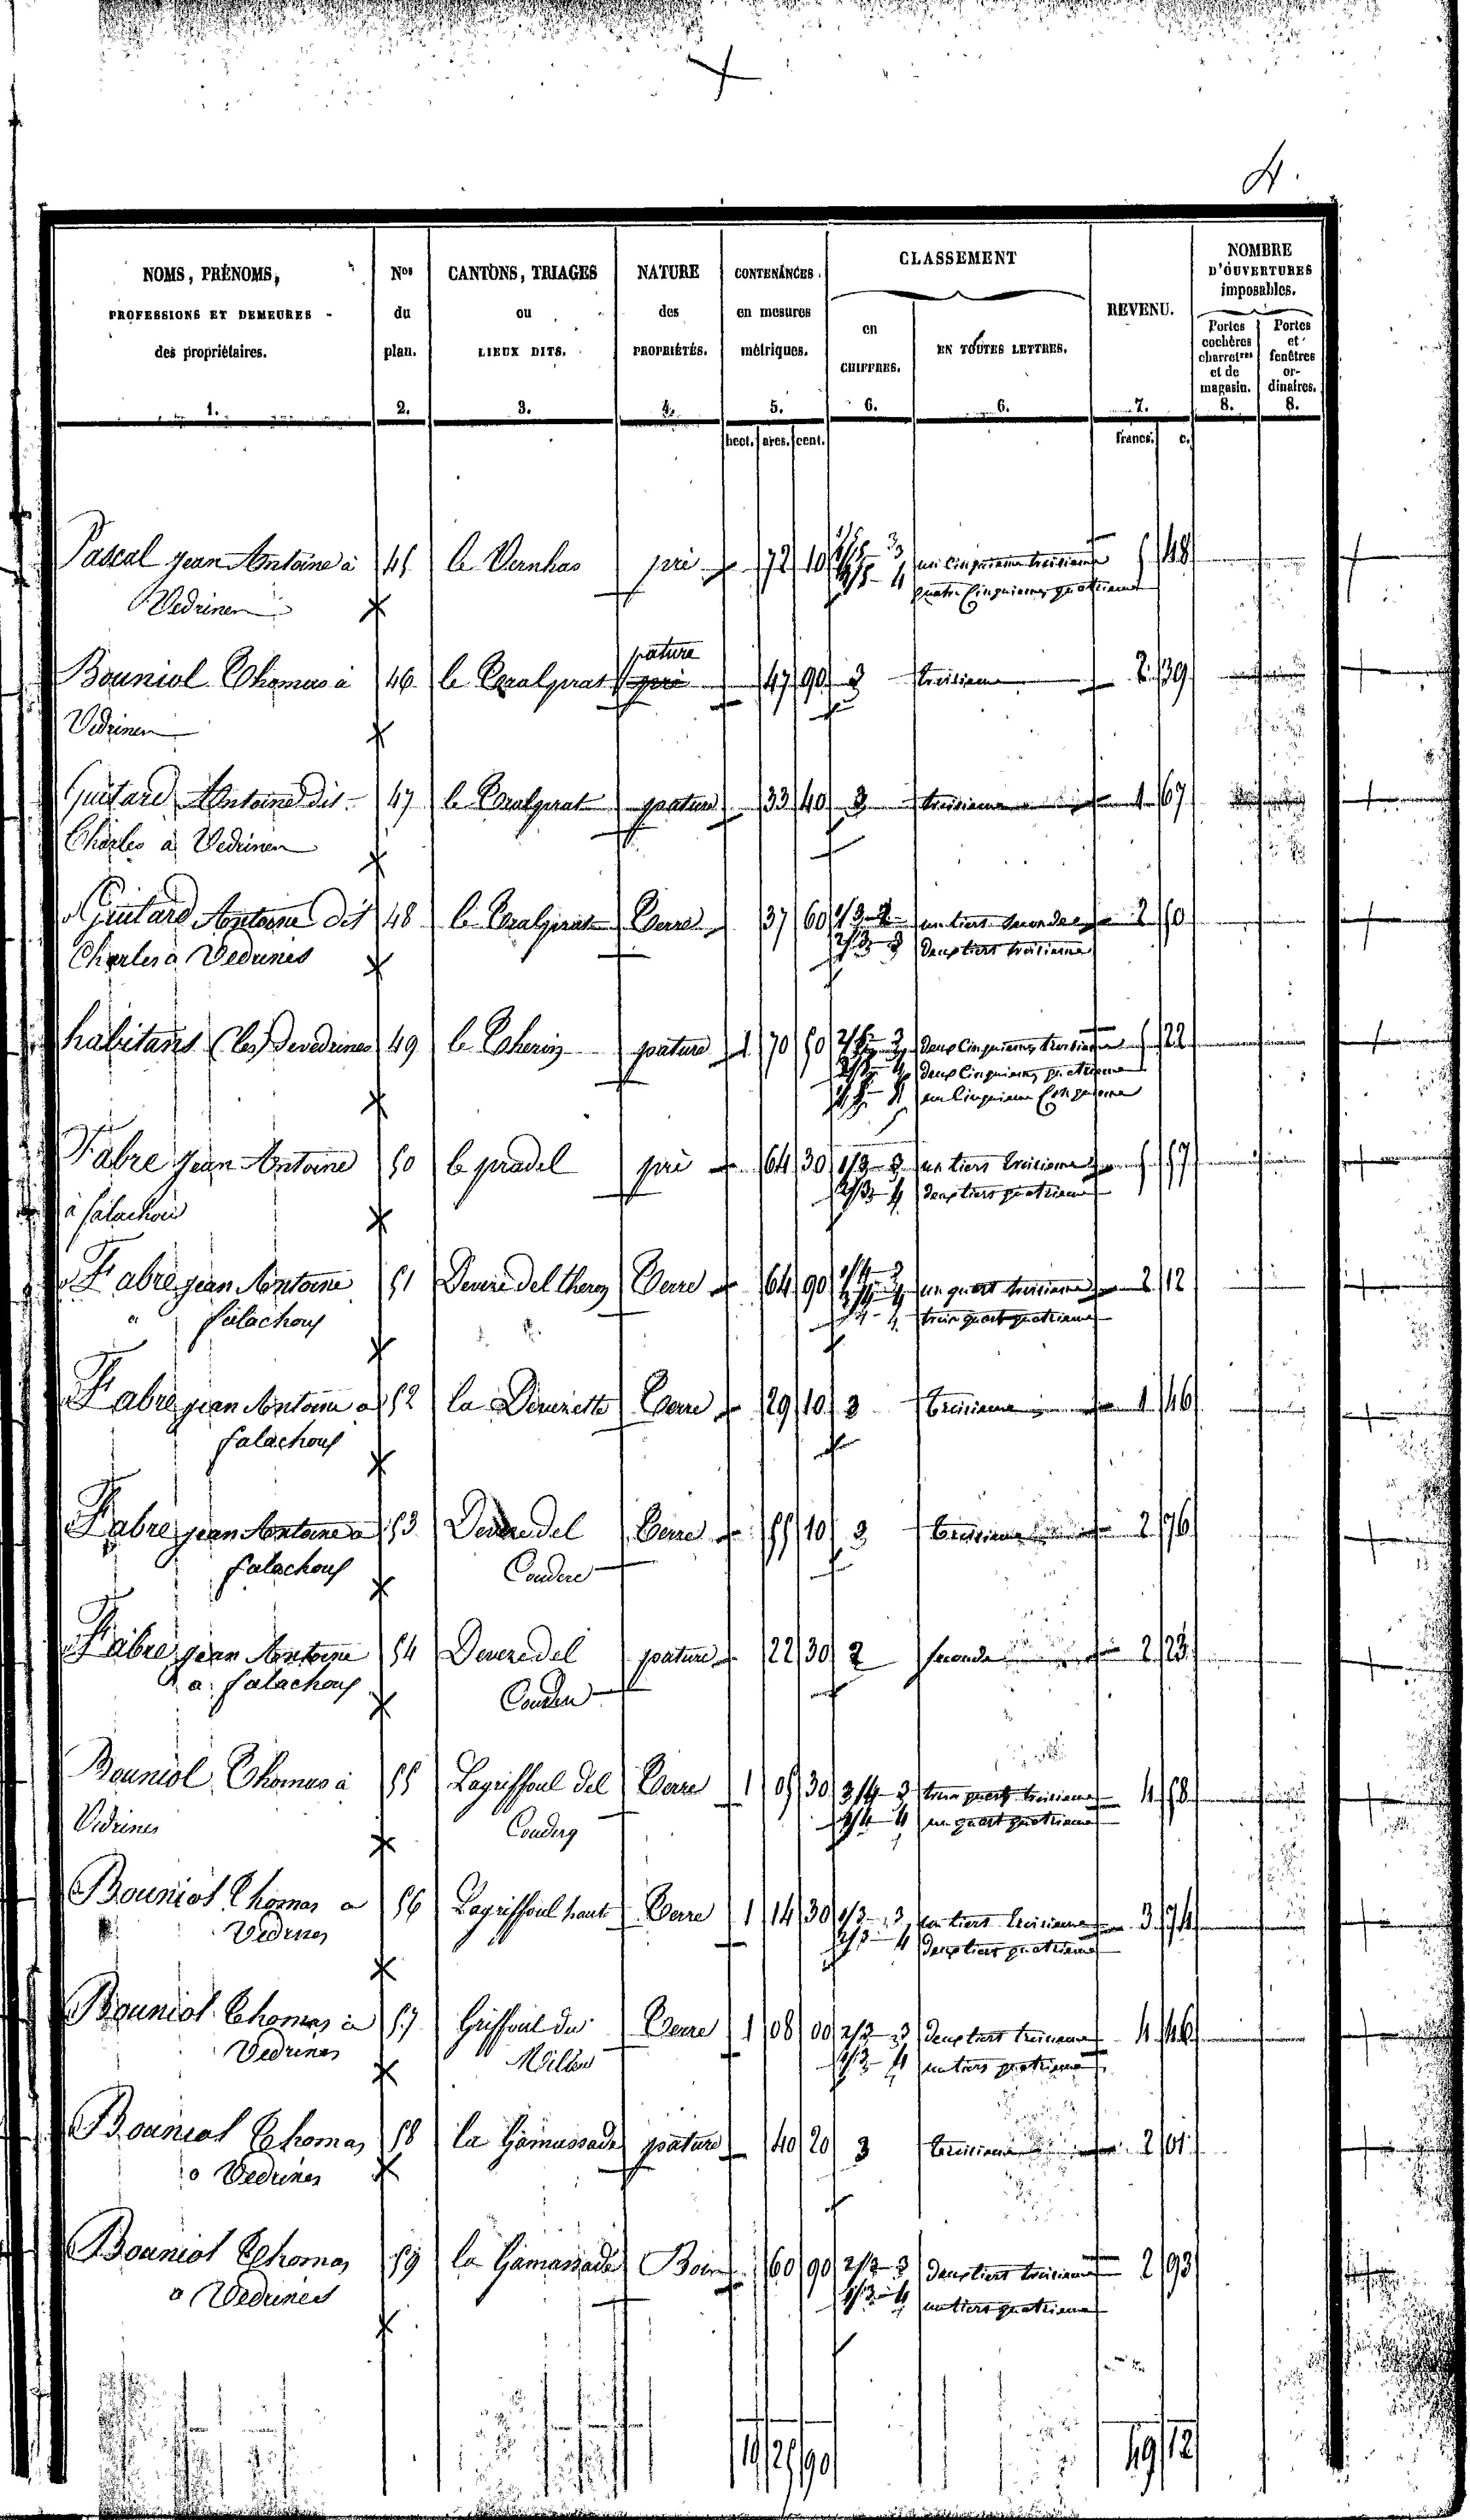 4.
NOMS, PRÉNOMS, PROFESSIONS ET DEMEURES des propriétaires. 1.
Nos du plan. 2.
CANTONS, TRIAGES ou LIEUX DITS. 3.
NATURE des PROPRIÉTÉS. 4.
CONTENANCES en mesures métriques. 5.
CLASSEMENT
en CHIFFRES. 6.
EN TOUTES LETTRES. 6.
REVENU. 7.
NOMBRE D'OUVERTURES imposables.
Portes cochères charretres et de magasin. 8.
Portes et fenêtres ordinaires. 8.
hect. ares. cent.
francs. c.
Pascal Jean Antoine à 45 le Vernhas pré 72 10 1/5 - 3 un cinquieme troisieme 5 48
Vedrines 4/5 - 4 quatre cinquiemes quatrieme
pature
Bouniol Thomas à 46 le pré 47 90 3 troisieme 2 39
Vedrines
Guitard Antoine dit 47 le pature 33 40 3 troisieme 1 67
Charles à Vedrines
Guitard Antoine dit 48 le Terre 37 60 1/3 - 2 un tiers seconde 2 50
Charles à Vedrines 2/3 - 3 deux tiers troisieme
habitans (les) de vedrines 49 le pature 1 70 50 2/5 - 3 deux cinquiemes troisieme 5 22
2/5 - 4 deux cinquiemes quatrieme
1/5 - 5 un cinquieme cinquieme
Fabre Jean Antoine 50 le pradel pré 64 30 1/3 - 3 un tiers troisieme 5 57
à falachous 2/3 - 4 deux tiers quatrieme
Fabre jean Antoine 51 Deveze del Terre 64 90 1/4 - 3 un quart troisieme 2 12
a falachous 3/4 - 4 trois quart quatrieme
Fabre jean Antoine a 52 la Devezette Terre 29 10 3 troisieme 1 46
falachous
Fabre jean Antoine a 53 Deveze del Terre 55 10 3 troisieme 2 76
falachous Couderc
Fabre jean Antoine 54 Deveze del pature 22 30 2 seconde 2 23
a falachous Couderc
Bouniol Thomas à 55 Lagriffoul del Terre 1 05 30 3/4 - 3 trois quarts troisieme 4 58
Vedrines Couderq 1/4 - 4 un quart quatrieme
Bouniol Thomas a 56 Lagriffoul haut Terre 1 14 30 1/3 - 3 un tiers troisieme 3 74
Vedrines 2/3 - 4 deux tiers quatrieme
Bouniol Thomas à 57 Griffoul du Terre 1 08 00 2/3 - 3 deux tiers troisieme 4 46
Vedrines Milieu 1/3 - 4 un tiers quatrieme
Bouniol Thomas 58 la Gamassade pature 40 20 3 troisieme 2 01
a Vedrines
Bouniol Thomas 59 la Gamassade Bois 60 90 2/3 - 3 deux tiers troisieme 2 93
a Vedrines 1/3 - 4 un tiers quatrieme
10 25 90 49 12